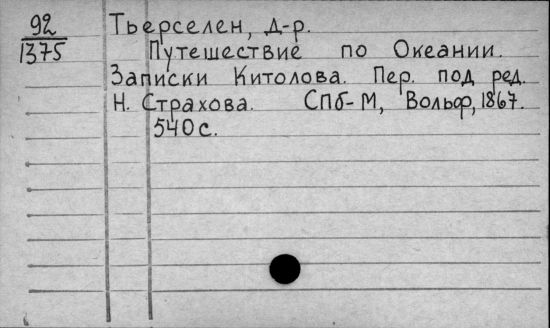 92
1375
Тьерселен, д-р.
Путешествие по Океании.
Записки Китолова. Пер. под ред.
Н. Страхова. СПб-М, Вольф, 1867.
540 с.